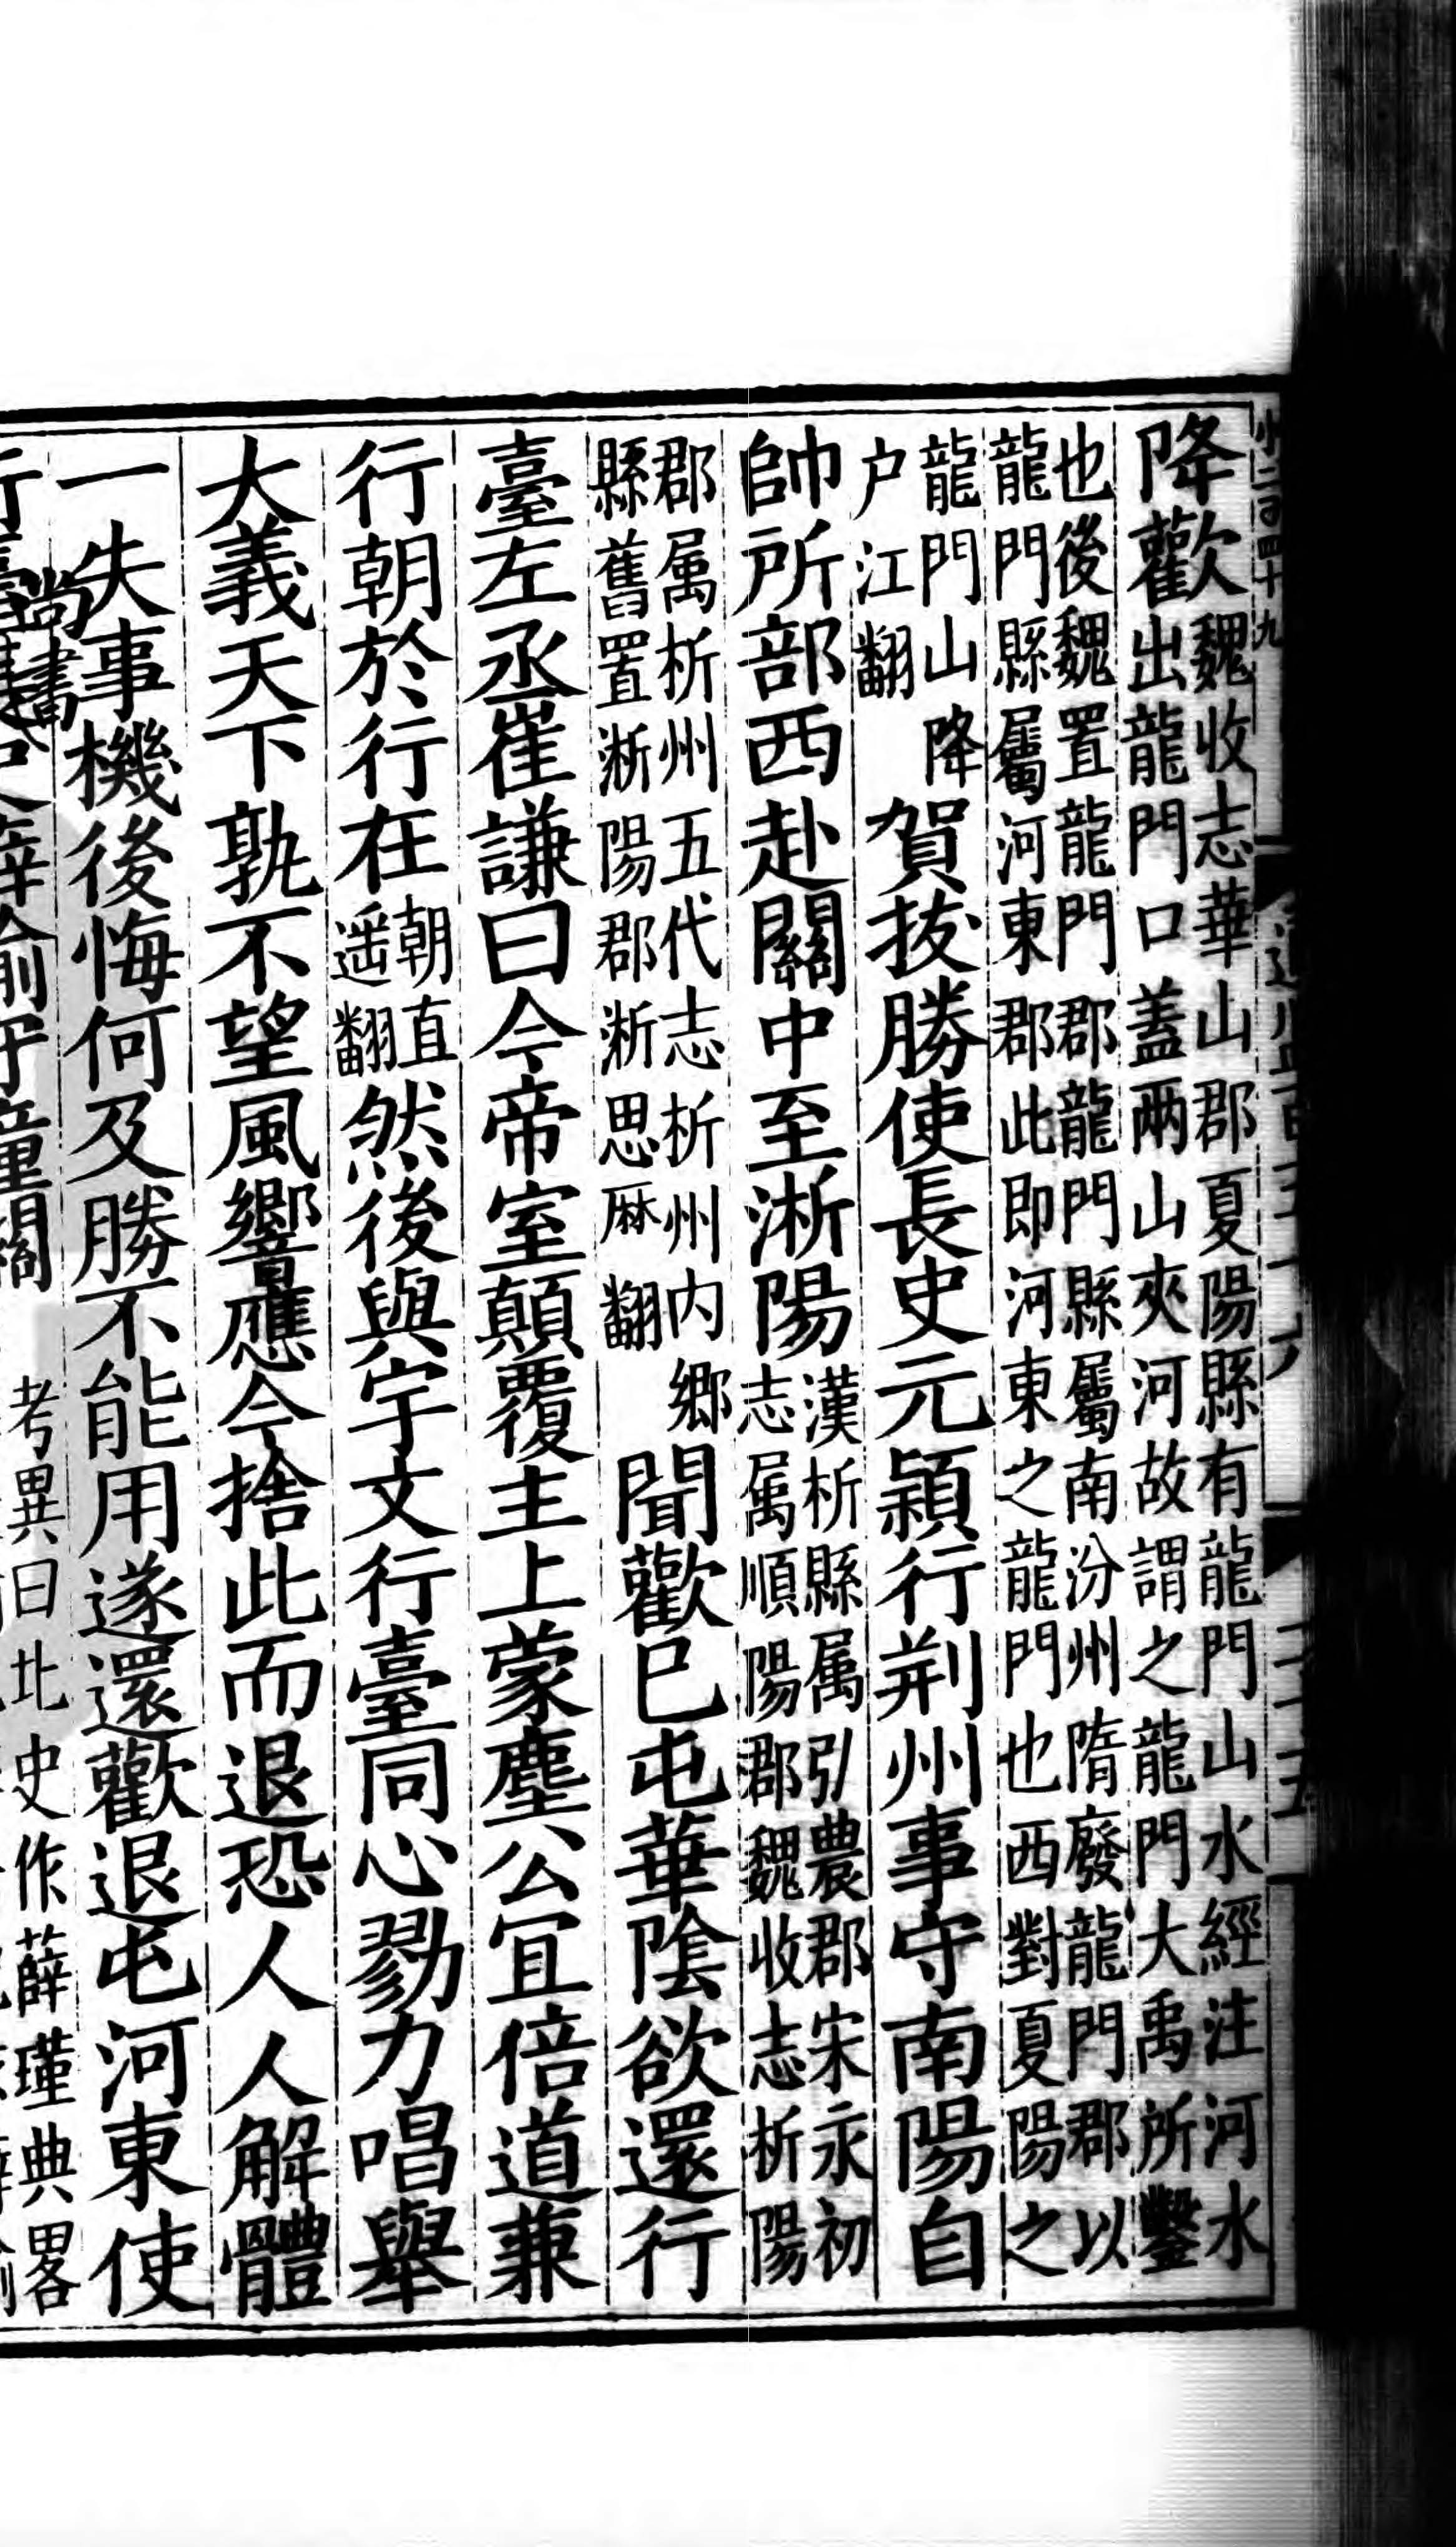 降歡魏收志華山郡夏陽縣有龍門山水經注河水
出龍門口蓋兩山夾河故謂之龍門大禹所鑿
也後魏置龍門郡龍門縣屬南汾州隋廢龍門郡以
龍門縣屬河東郡此即河東之龍門也西對夏陽之
龍門山降
户江翻賀拔勝使長史元頴行荆州事守南陽自
帥所部西赴關中至淅陽漢析縣属弘農郡宋永初
志属順陽郡魏收志析陽
郡属析州五代志析州内鄉
縣舊置淅陽郡淅思厤翻聞歡已屯華陰欲還行
臺左丞崔謙曰今帝室顛覆主上蒙塵公宜倍道兼
行朝於行在朝直
遥翻然後與宇文行臺同心勠力唱舉
大義天下孰不望風響應今捨此而退恐人人解體
一失事機後悔何及勝不能用遂還歡退屯河東使
尚書
考異曰北史作薛瑾典畧